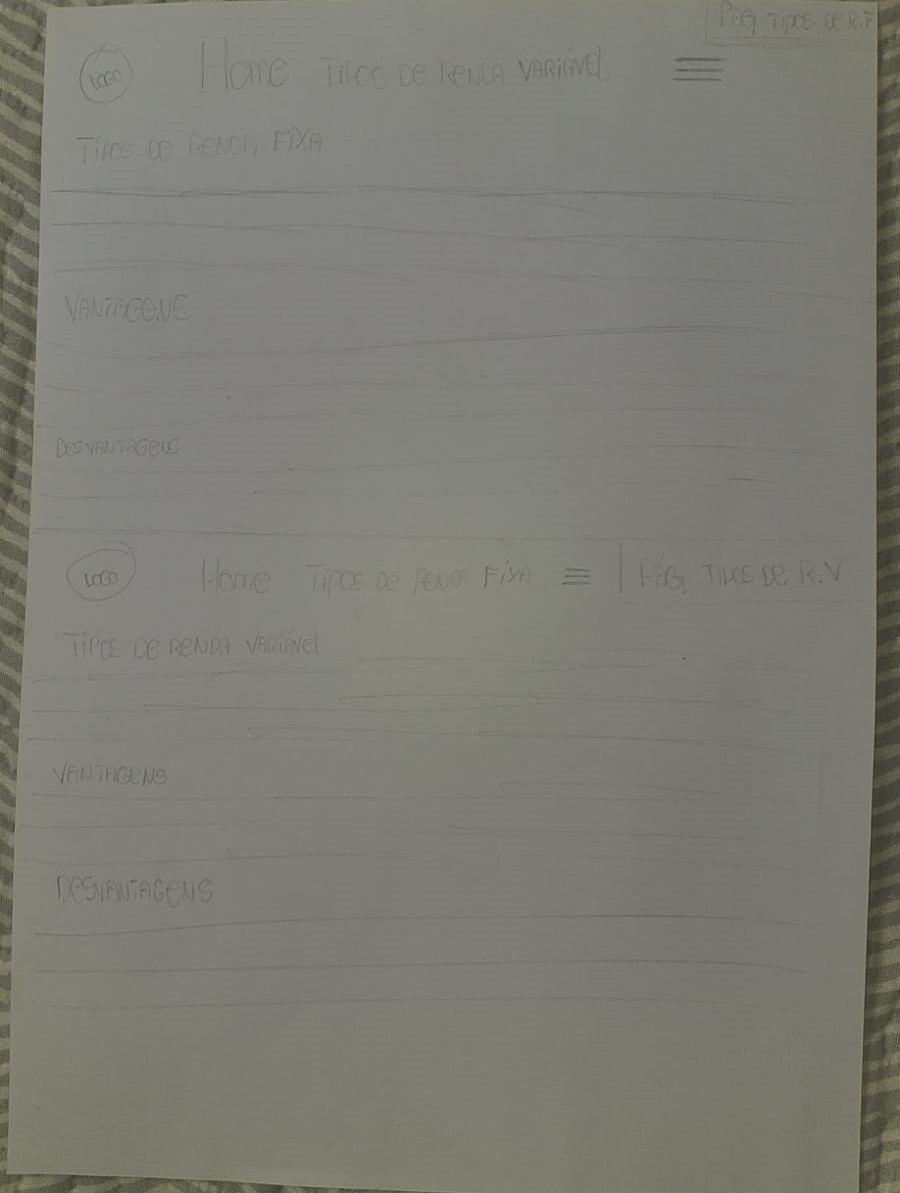 PÁG TIPOS DE R.F
LOGO Home TIPOS DE RENDA VARIÁVEL
TIPOS DE RENDA FIXA
VANTAGENS
DESVANTAGENS
LOGO Home TIPOS DE RENDA FIXA PÁG TIPOS DE R.V
TIPOS DE RENDA VARIÁVEL
VANTAGENS
DESVANTAGENS